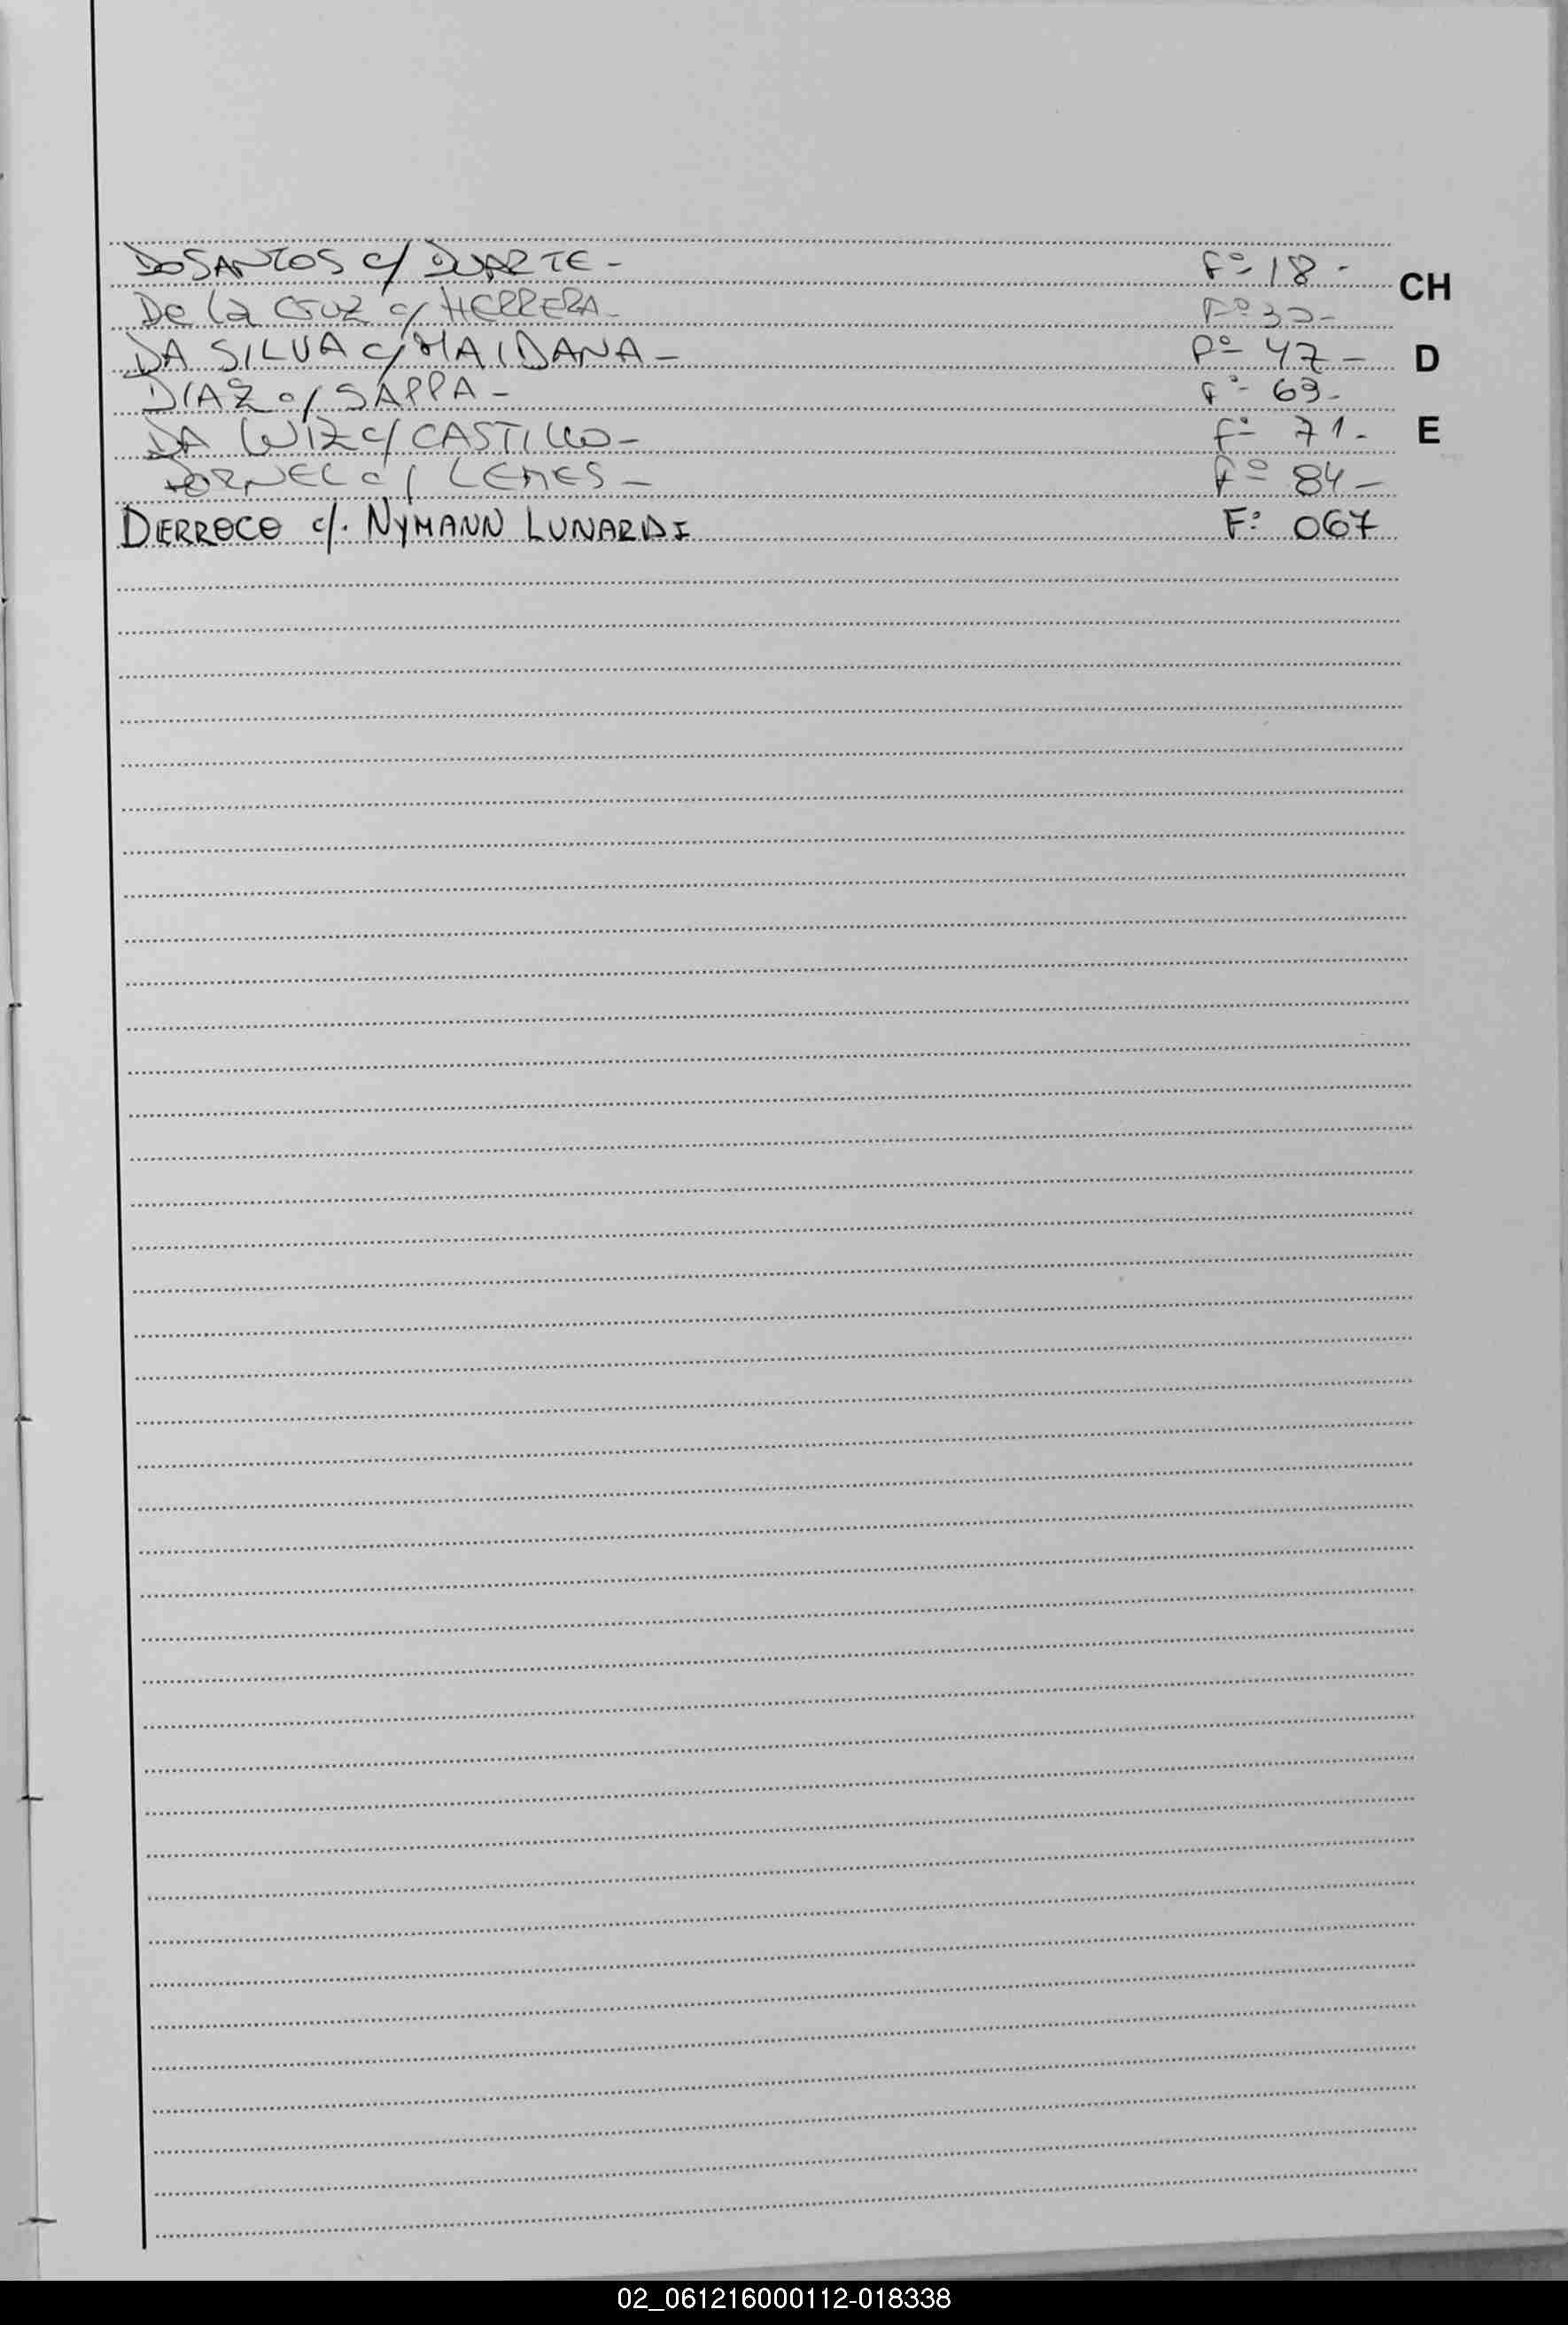 DOSANTOS c/ DUARTE - Fº 18 -
CH
De la Cruz c/ HERRERA - Fº 30 -
DA SILVA c/ MAIDANA - Fº 47 -
D
DIAZ c/ SAPPA - Fº 69 -
DA c/ CASTILLO - Fº 71 -
E
c/ LEMES - Fº 84 -
DERROCO c/. NYMANN LUNARDI F: 067
02_061216000112-018338